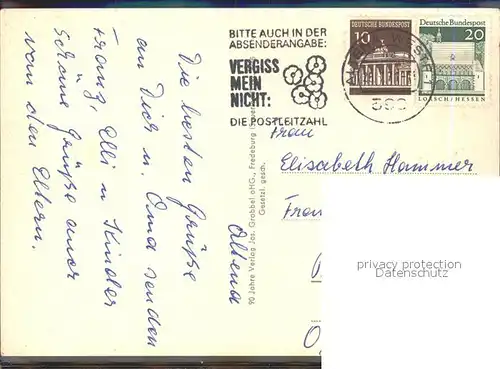 BITTE AUCH IN DER
ABSENDERANGABE:
VERGISS
MEIN
NICHT:
DIE POSTLEITZAHL
10 DEUTSCHE BUNDESPOST
Deutsche Bundespost
20
LORSCH/HESSEN
Frau
Elisabeth Hammer
privacy protection
Datenschutz
90 Jahre Verlag Jos. Grobbel oHG., Fredeburg
Gesetzl. gesch.
Die besten Grüße
aus
Dir u. Oma senden
Franz, Elli u. Kinder
Schöne Grüße auch
von den Eltern.